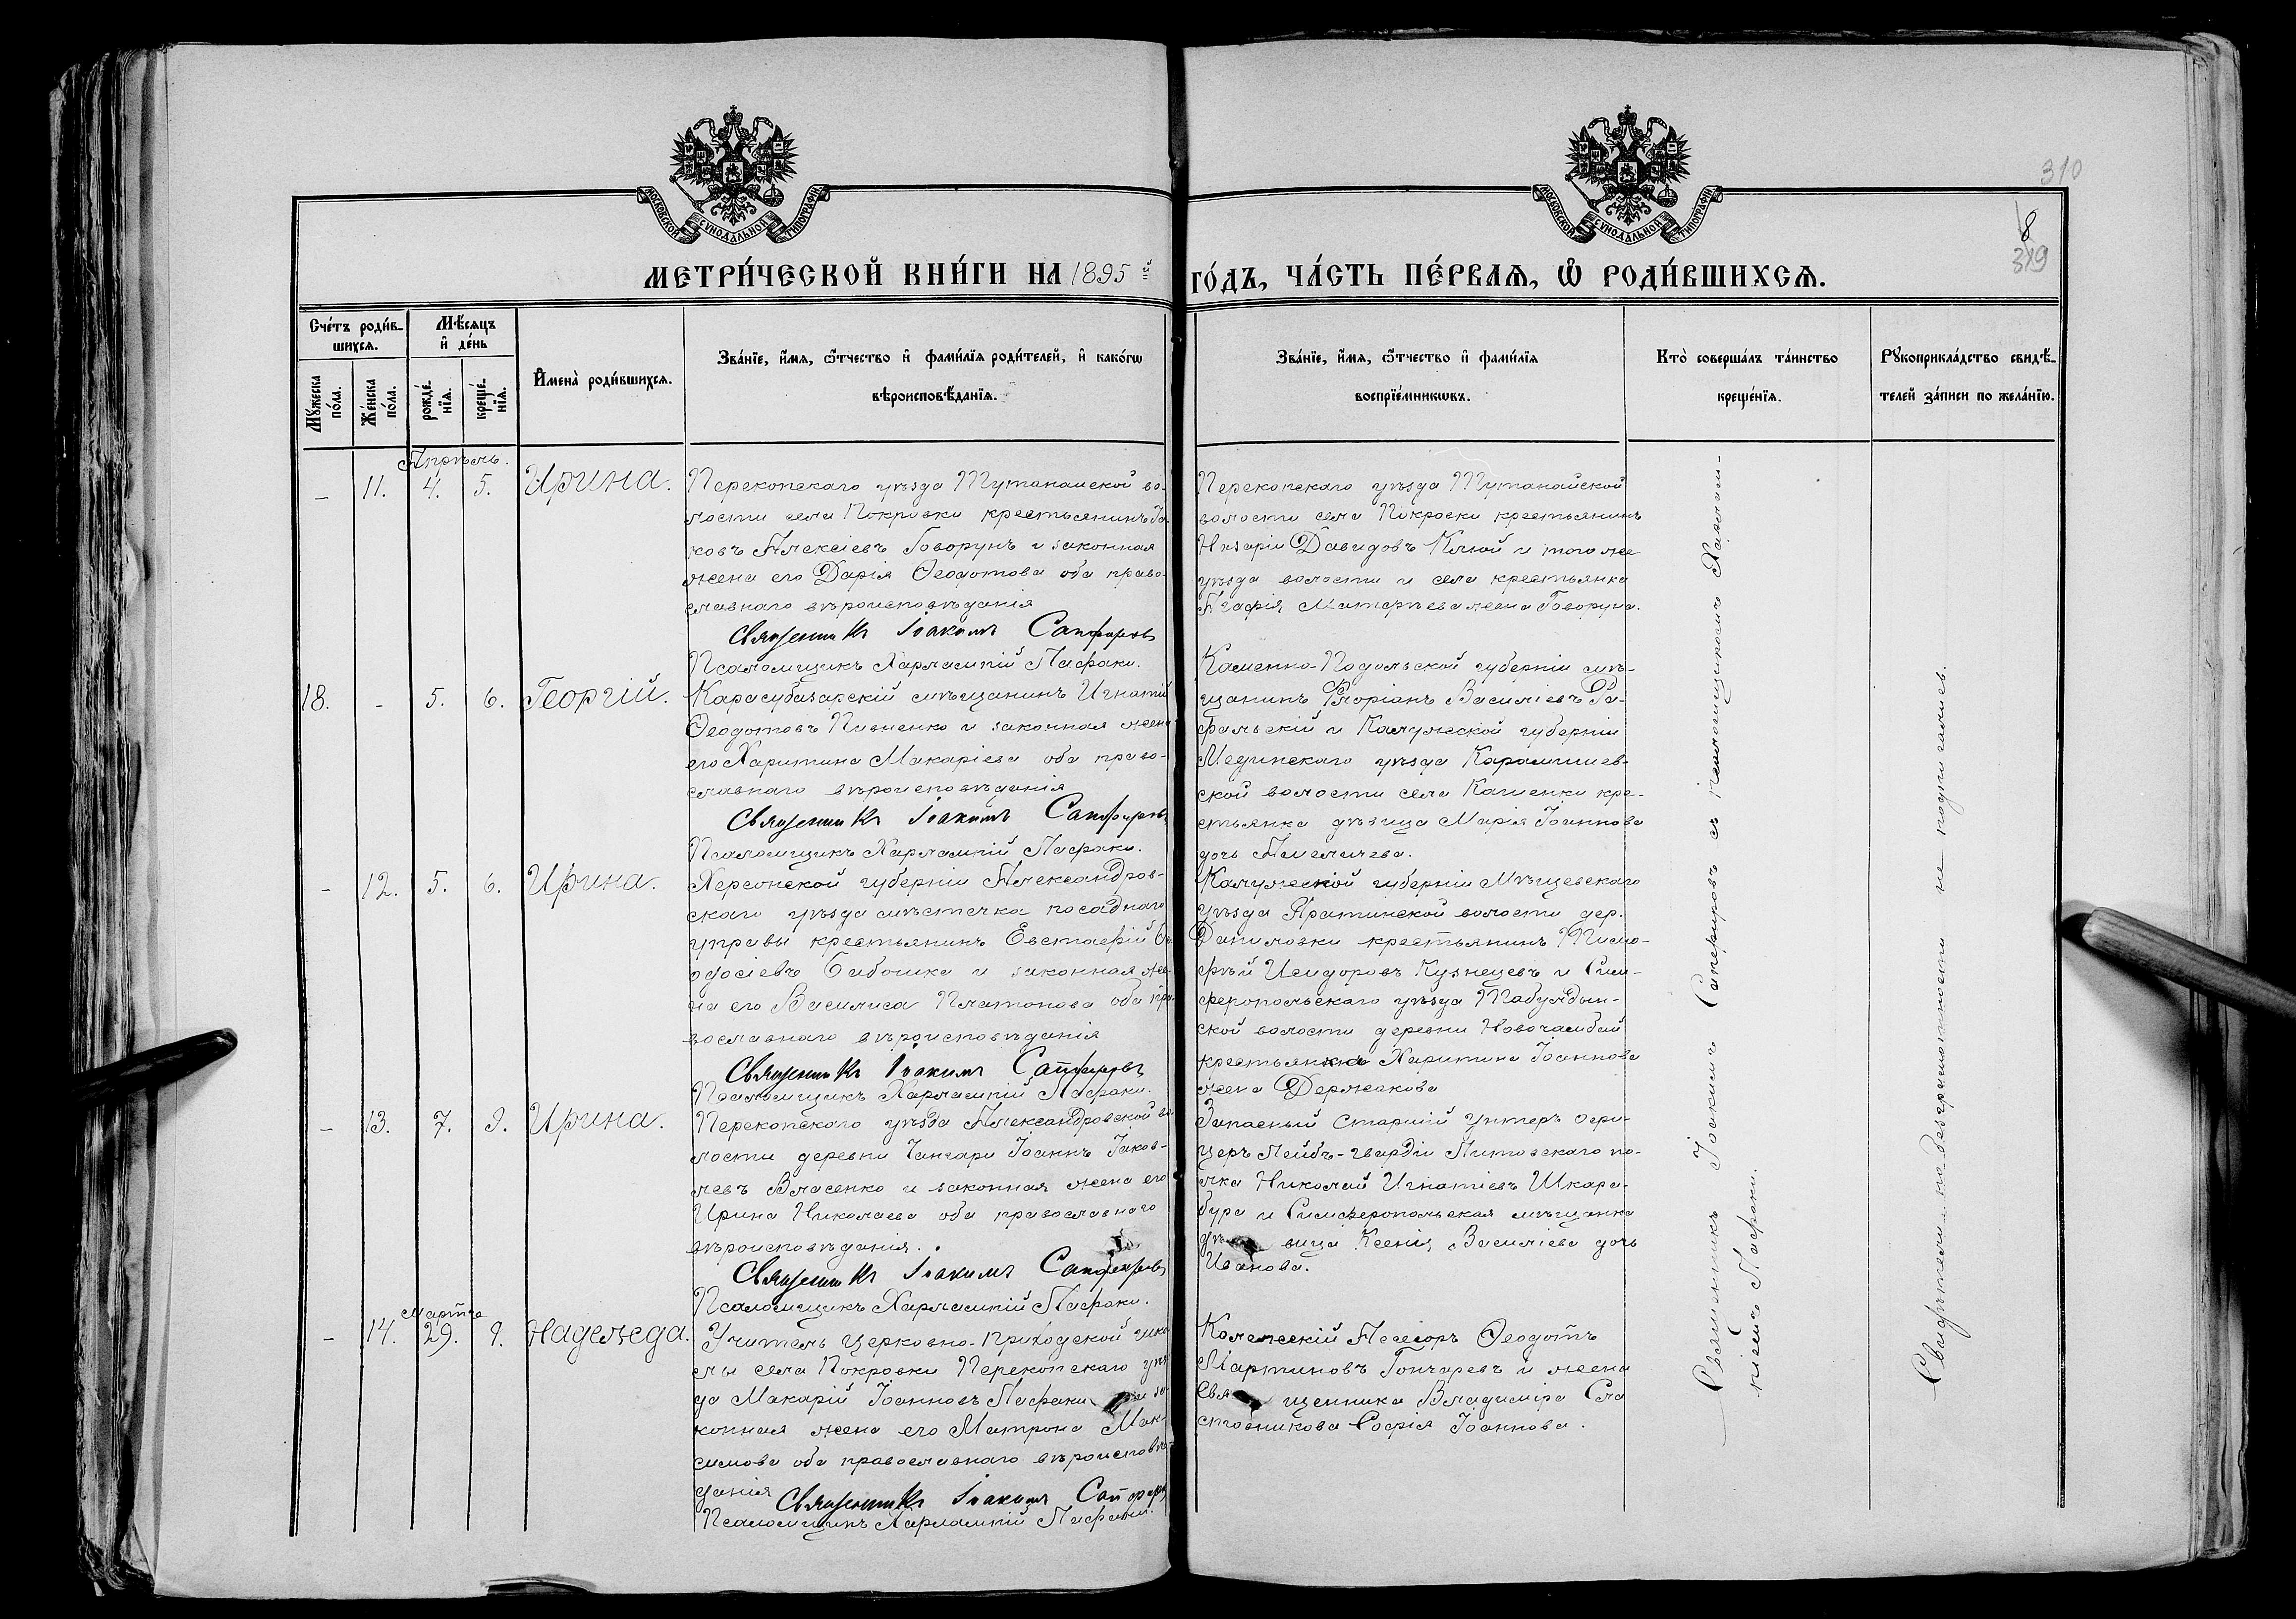 310
8
319
МОСКОВСКОЙ СѴНОДАЛЬНОЙ ТИПОГРАФІИ
МОСКОВСКОЙ СѴНОДАЛЬНОЙ ТИПОГРАФІИ
МЕТРИ́ЧЕСКОЙ КНИ́ГИ НА 1895й
ГО́ДЪ, ЧА́СТЬ ПЕ́РВАѦ, Ѡ҆ РОДИ́ВШИХСѦ.
Сче́тъ роди́в-
шихсѧ.
Мꙋжеска
по́ла.
Же́нска
по́ла.
Мѣ́сѧцъ
и҆ де́нь
рожде́-
нїѧ.
креще́-
нїѧ.
И҆мена̀ роди́вшихсѧ.
Зва́нїе, и҆́мѧ, ѻ҆́тчество и҆ фами́лїѧ роди́телей, и҆ како́гѡ
вѣроисповѣ́данїѧ.
Зва́нїе, и҆́мѧ, ѻ҆́тчество и҆ фами́лїѧ
воспрїе́мникѡвъ.
Кто̀ соверша́лъ та́инство
креще́нїѧ.
Рꙋкоприкла́дство свидѣ́-
телей за́писи по жела́нїю.
Апрѣль.
– 11. 4. 5. Ирина.
Перекопскаго уѣзда Тутанайской во-
лости села Покровки крестьянинъ Іа-
ковъ Алексіевъ Говорунъ и законная
жена его Дарія Ѳеодотова оба право-
славнаго вѣроисповѣданія
Священникъ Іоакимъ Сапфировъ
Псаломщикъ Харлампій Пафаки.
Перекопскаго уѣзда Тутанайской
волости села Покровки крестьянинъ
Назарій Давидовъ Клюй и того же
уѣзда волости и села крестьянка
Агафія жена Говоруна.
18. – 5. 6. Георгій.
Карасубазарскій мѣщанинъ Игнатій
Ѳеодотовъ Пивненко и законная жена
его Харитина Макаріева оба право-
славнаго вѣроисповѣданія
Священникъ Іоакимъ Сапфировъ
Псаломщикъ Харлампій Пафаки.
Каменно-Подольской губерніи мѣ-
щанинъ Флоріанъ Василіевъ Ра-
фальскій и Калужской губерніи
Мединскаго уѣзда
ской волости села Каменки кре-
стьянка дѣвица Марія Іоаннова
дочь
– 12. 5. 6. Ирина.
Херсонской губерніи Александров-
скаго уѣзда мѣстечка посаднаго
управы крестьянинъ Евстафій Ѳе-
одосіевъ Бабошка и законная же-
на его Василиса Платонова оба пра-
вославнаго вѣроисповѣданія
Священникъ Іоакимъ Сапфировъ
Псаломщикъ Харлампій Пафаки.
Калужской губерніи Мѣщевскаго
уѣзда волости дер.
Даниловки крестьянинъ Тимо-
фѣй Исидоровъ Кузнецевъ и Сим-
феропольскаго уѣзда Табулдын-
ской волости деревни Новочамбай
крестьянка Харитина Іоаннова
жена Держакова
– 13. 7. 9. Ирина.
Перекопскаго уѣзда Александровской во-
лости деревни Чангари Іоаннъ Іаков-
левъ Власенко и законная жена его
Ирина Николаева оба православнаго
вѣроисповѣданія.
Священникъ Іоакимъ Сапфировъ
Псаломщикъ Харлампій Пафаки.
Запасный старшій унтеръ офи-
церъ Лейбъ-гвардіи Литовскаго по-
лка Николай Игнатіевъ Шкара-
бура и Симферопольская мѣщанка
дѣвица Ксенія Василіева дочь
Иванова.
Марта
– 14. 29. 9. Надежда.
Учитель церковно-приходской шко-
лы села Покровки Перекопскаго уѣз-
да Макарій Іоанновъ Пафаки и за-
конная жена его Матрона Мак-
симова оба православнаго вѣроисповѣ-
данія
Священникъ Іоакимъ Сапфировъ
Псаломщикъ Харлампій Пафаки.
Колежскій Асесоръ Ѳеодотъ
Мартиновъ Гончаревъ и жена
Священника Владиміра Сла
стовникова Софія Іоаннова.
Священникъ Іоакимъ Сапфировъ съ псаломщикомъ Харлам-
піемъ Пафаки.
Свидѣтели по безграмотности не подписались.